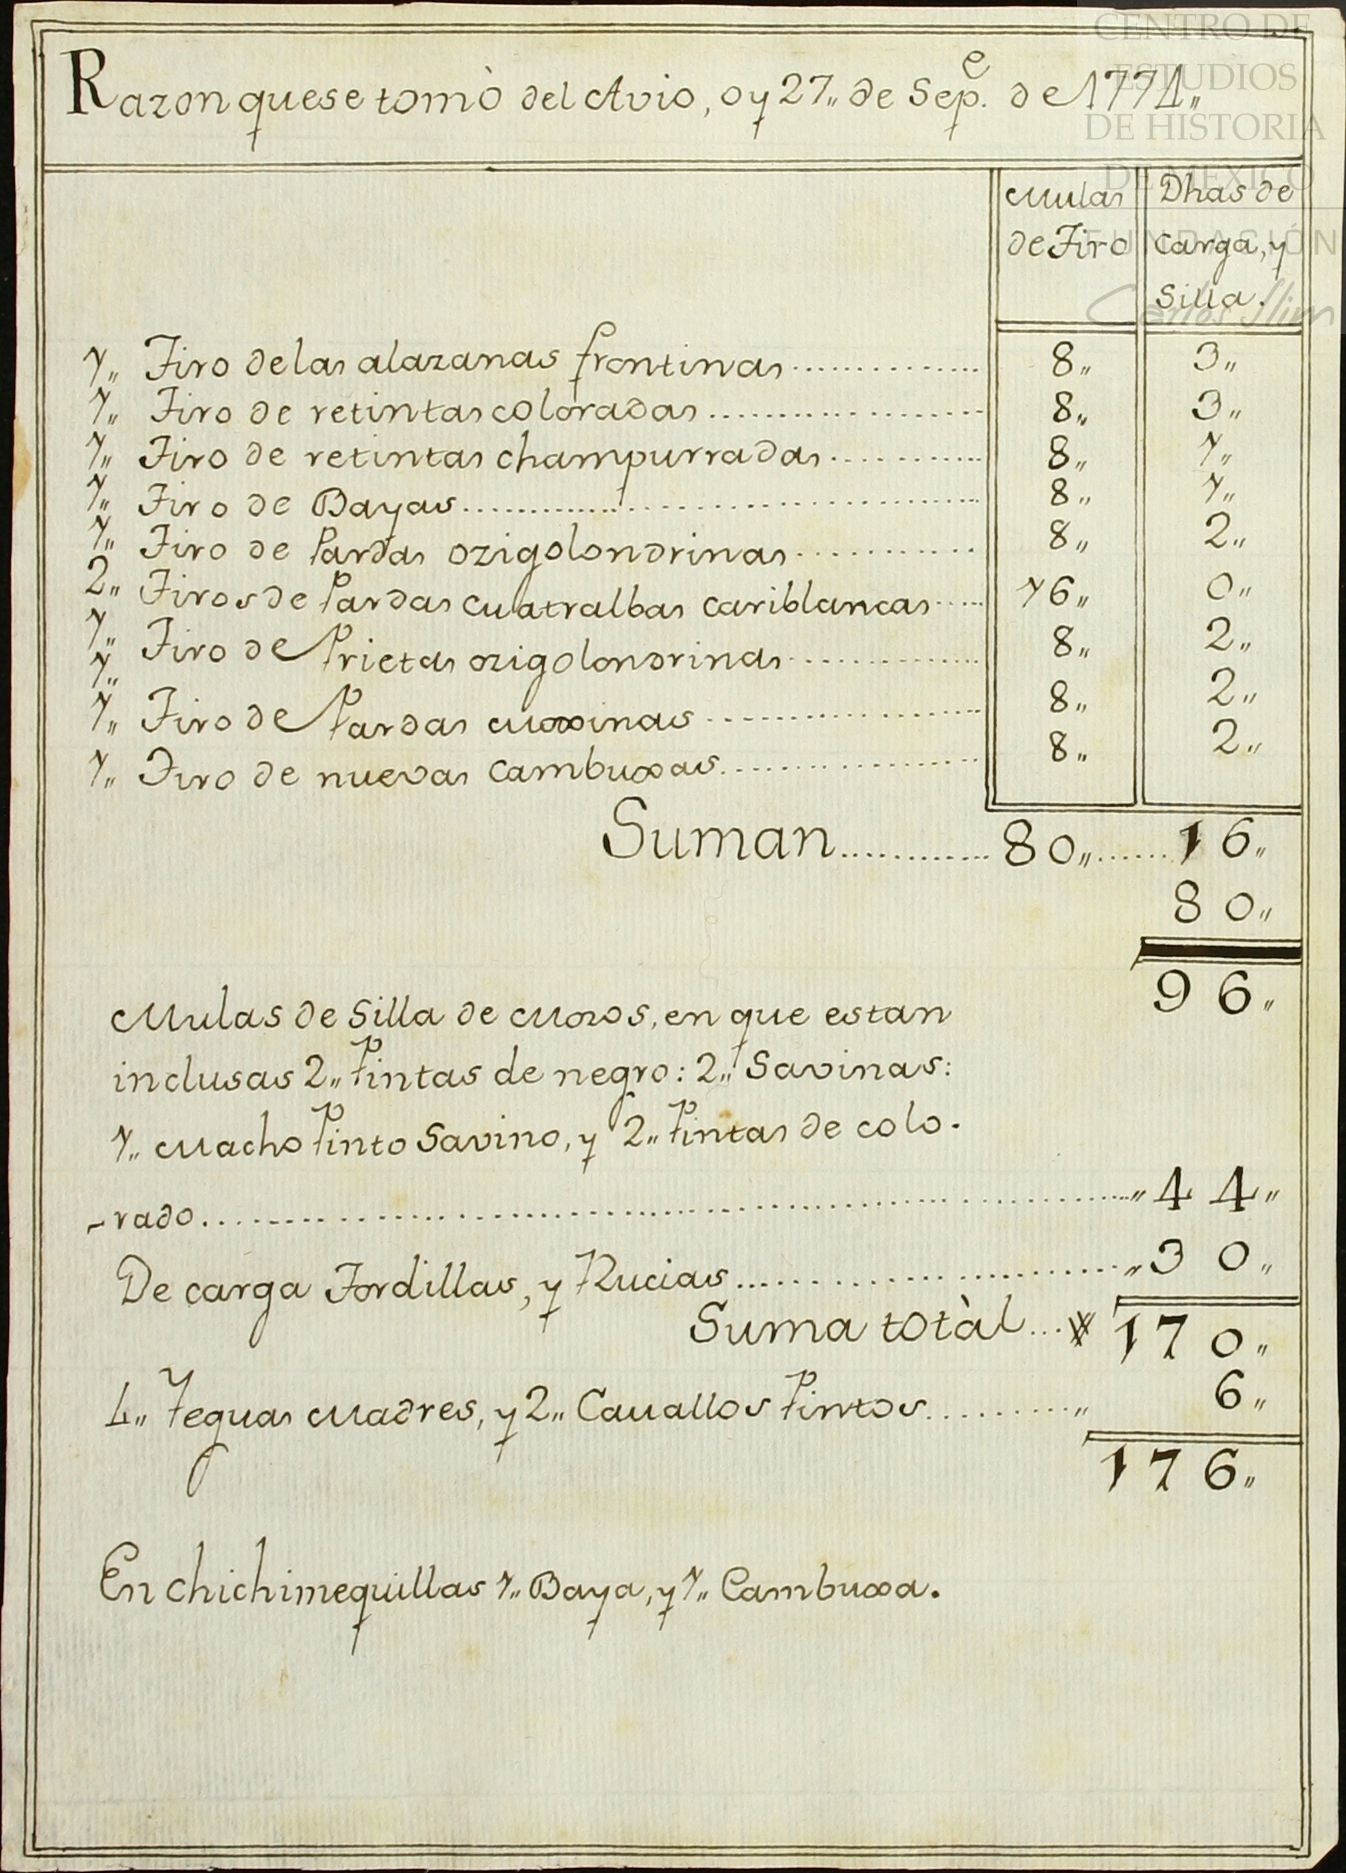 CENTRO DE
ESTUDIOS
DE HISTORIA
DE MEXICO
FUNDACIÓN
Carlos Slim
Razon que se tomò del Avio, oy 27,, de Sep.e de 1774,,
Mulas de Tiro
Dhas de carga, y Silla.
1,, Tiro de las alazanas frontinas .............. 8,, 3,,
1,, Tiro de retintas coloradas .............. 8,, 3,,
1,, Tiro de retintas champurradas .............. 8,, 1,,
1,, Tiro de Bayas .............. 8,, 1,,
1,, Tiro de Pardas ozigolondrinas .............. 8,, 2,,
2,, Tiros de Pardas cuatralbas cariblancas ..... 16,, 0,,
1,, Tiro de Prietas ozigolondrinas .............. 8,, 2,,
1,,
1,, Tiro de Pardas moxinas .............. 8,, 2,,
1,, Tiro de nuevas Cambuxas .............. 8,, 2,,
Suman .............. 80,, ....... 16,,
80,,
96,,
Mulas de Silla de Mozos, en que estan
inclusas 2,, Pintas de negro: 2,, Savinas:
1,, Macho Pinto Savino, y 2,, Pintas de colo-
-rado .............. ,, 44,,
De carga Tordillas, y Rucias .............. ,, 30,,
Suma totàl ... 170,,
4,, Yeguas Madres, y 2,, Cauallos Pintos .......... ,, 6,,
176,,
En Chichimequillas 1,, Baya, y 1,, Cambuxa.